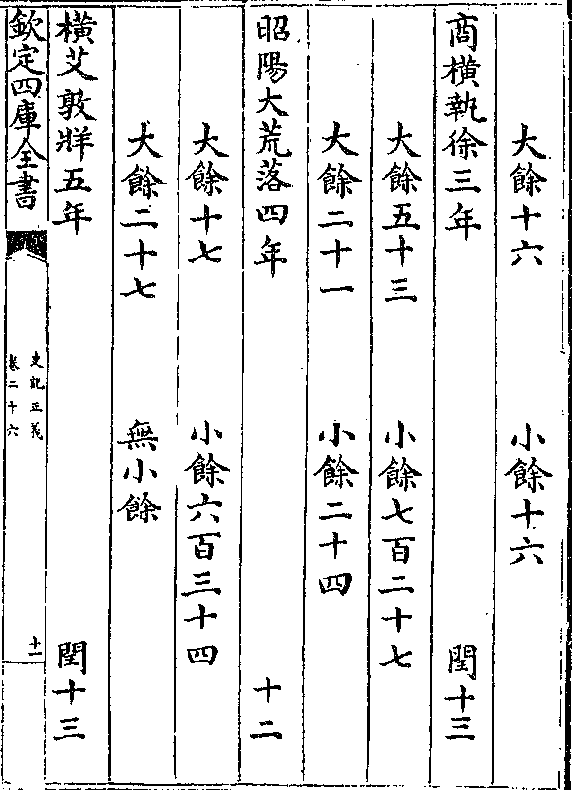 大餘十六 小餘十六
商橫執徐三年 閏十三
大餘五十三 小餘七百二十七
大餘二十一 小餘二十四
昭陽大荒落四年 十二
大餘十七 小餘六百三十四
大餘二十七 無小餘
橫艾敦牂五年 閏十三
欽定四庫全書
史記正義
卷二十六
十一